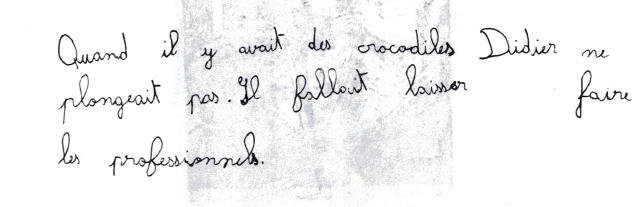 Quand il y avait des crocodiles Didier ne
plongeait pas. Il fallait laisser faire
les professionnels.